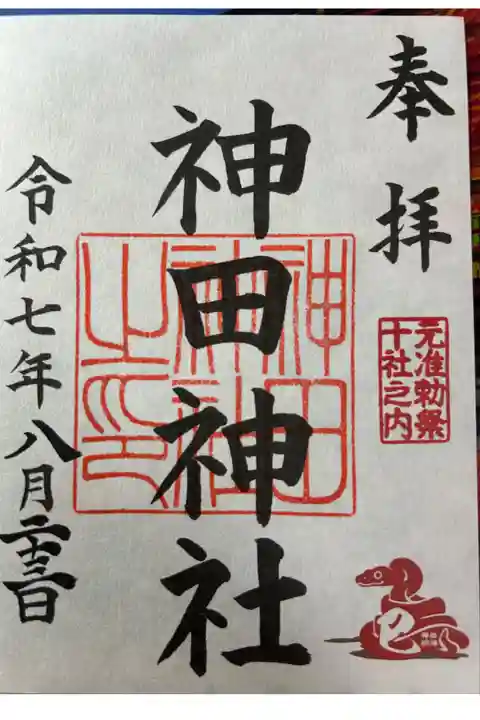 奉拝
元准勅祭
十社之内
神田神社
神田
神社
之印
令和七年八月二十三日
巳